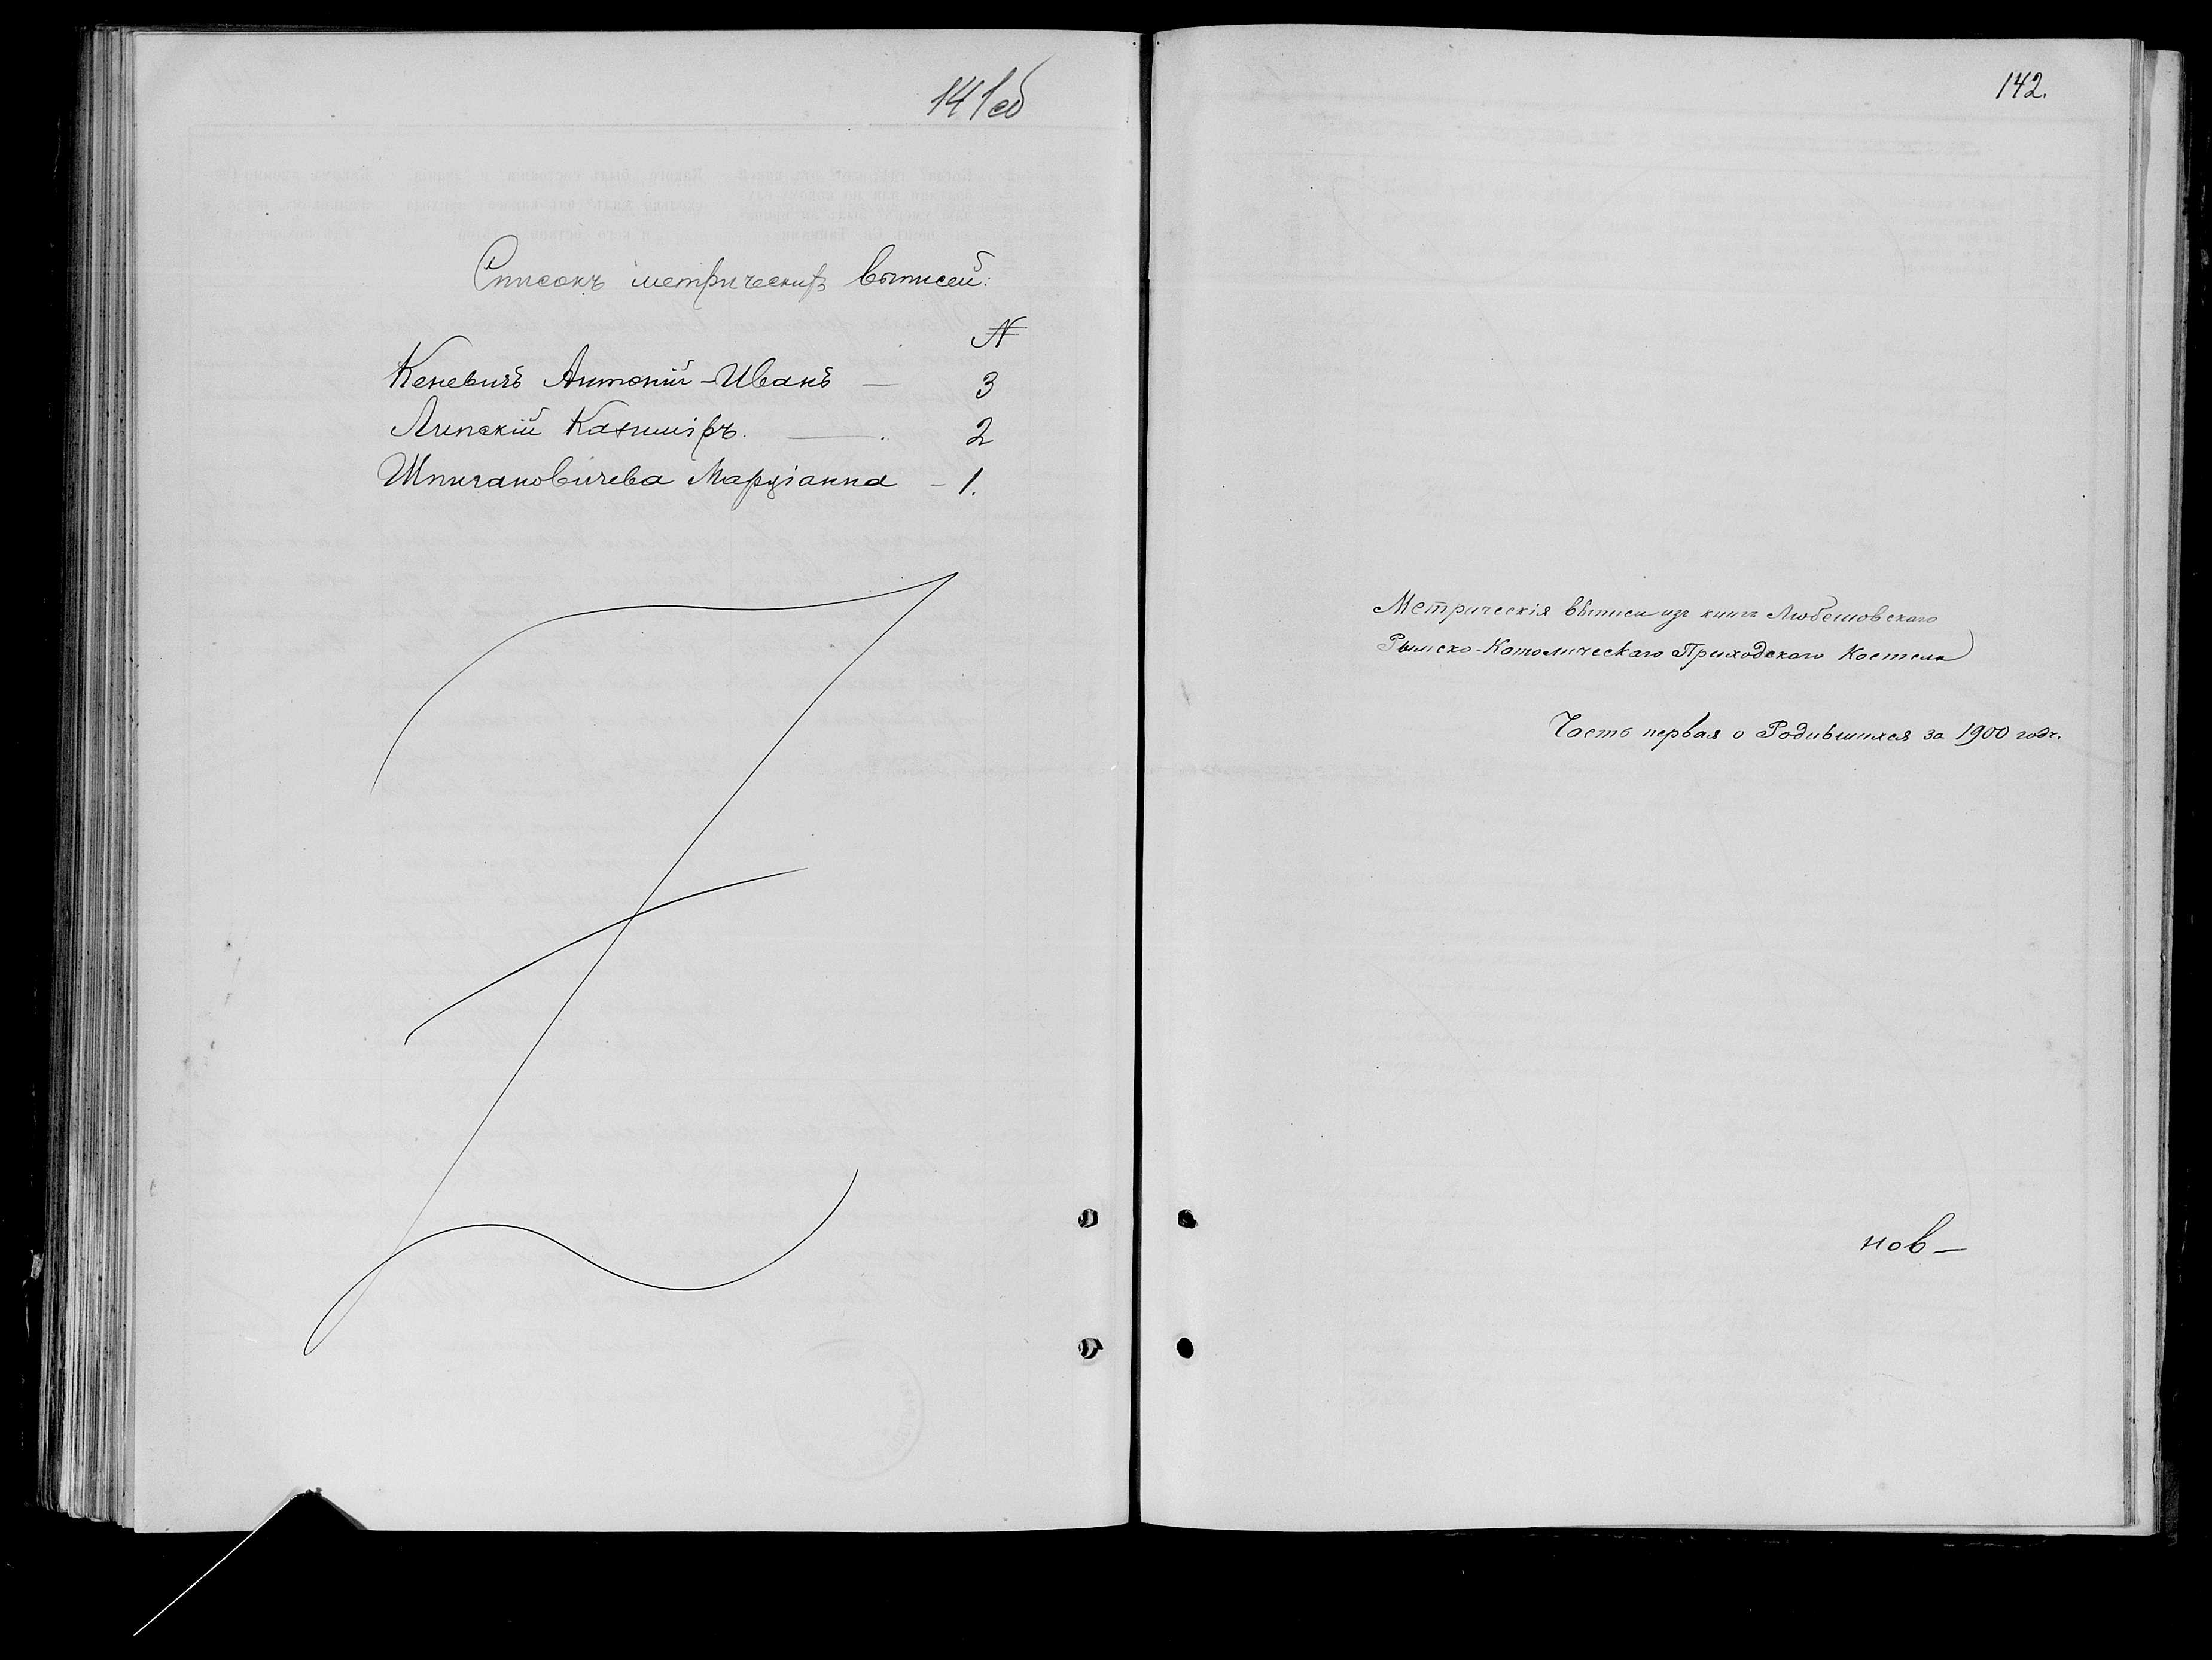 141об
Списокъ метрическихъ выписей:
№
Кеневичъ Антоній-Иванъ — 3
Липскій Казиміръ. — 2
Шпигановичева Марціанна - 1.
142.
Метрическія выписи изъ книгъ Любешовскаго
Рымско-Католическаго Приходскаго Костела
Часть первая о Родившихся за 1900 годъ.
нов—